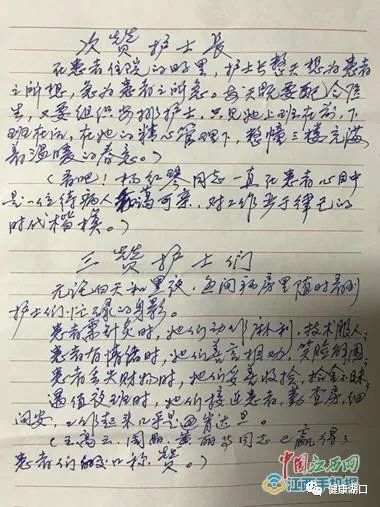 次赞护士长
在患者住院的日子里，护士长整天想为患者
之所想，急为患者之所急。每天既要配合医
生，又要组织安排护士，只见她上班在前，下
班在后，在她的精心管理下，整幢三楼充满
着温暖的春意。）
（看吧！杨红琴同志一直在患者心目中
是一位待病人和蔼可亲，对工作严于律己的
时代楷模。）
三赞护士们
无论白天和黑夜，每间病房里随时看到
护士们忙碌的身影。
患者需针灸时，她们动作麻利，技术服人；
患者有情绪时，她们善言相劝，笑脸解围；
患者丢失财物时，她们妥善收捡，拾金不昧；
遇值夜班时，她们接近患者，勤查房，细
问安，工作起来几乎是通宵达旦。
同志已赢得了
患者们的交口称赞。）
中国江西网
江西手机报
健康湖口